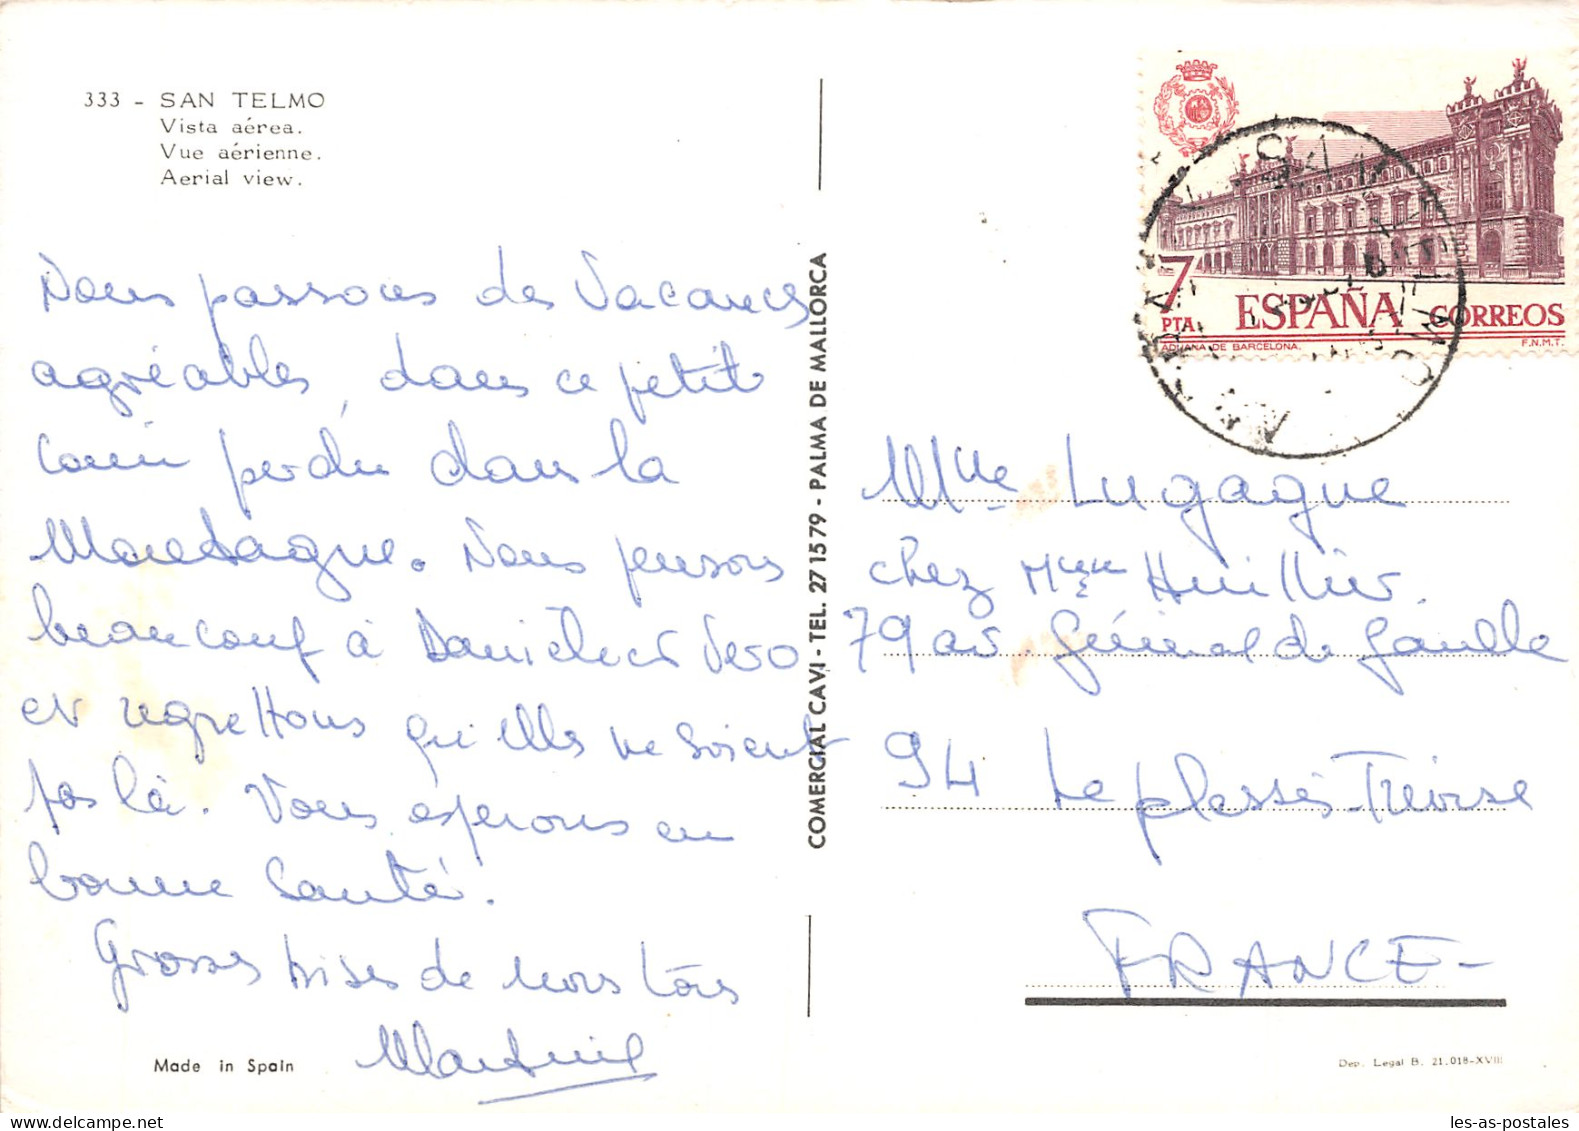 333 - SAN TELMO
Vista aérea.
Vue aérienne.
Aerial view.
Nous passons des Vacances
agréables, dans ce petit
coin perdu dans la
Montagne. Nous pensons
beaucoup à Danièle et Véro
et regrettons qu'elles ne soient
pas là. Vous espérons en
bonne santé.
Grosses bises de nous tous
Made in Spain
COMERCIAL CAVI - TEL. 27 15 79 - PALMA DE MALLORCA
7
PTA
ESPAÑA CORREOS
ADUANA DE BARCELONA.
F.N.M.T.
Mlle Lugagne
chez Mme Huillier.
79 av. Général de Gaulle
94 Le plessis-Trévise
FRANCE-
Dep. Legal B. 21.018-XVIII
les-as-postales